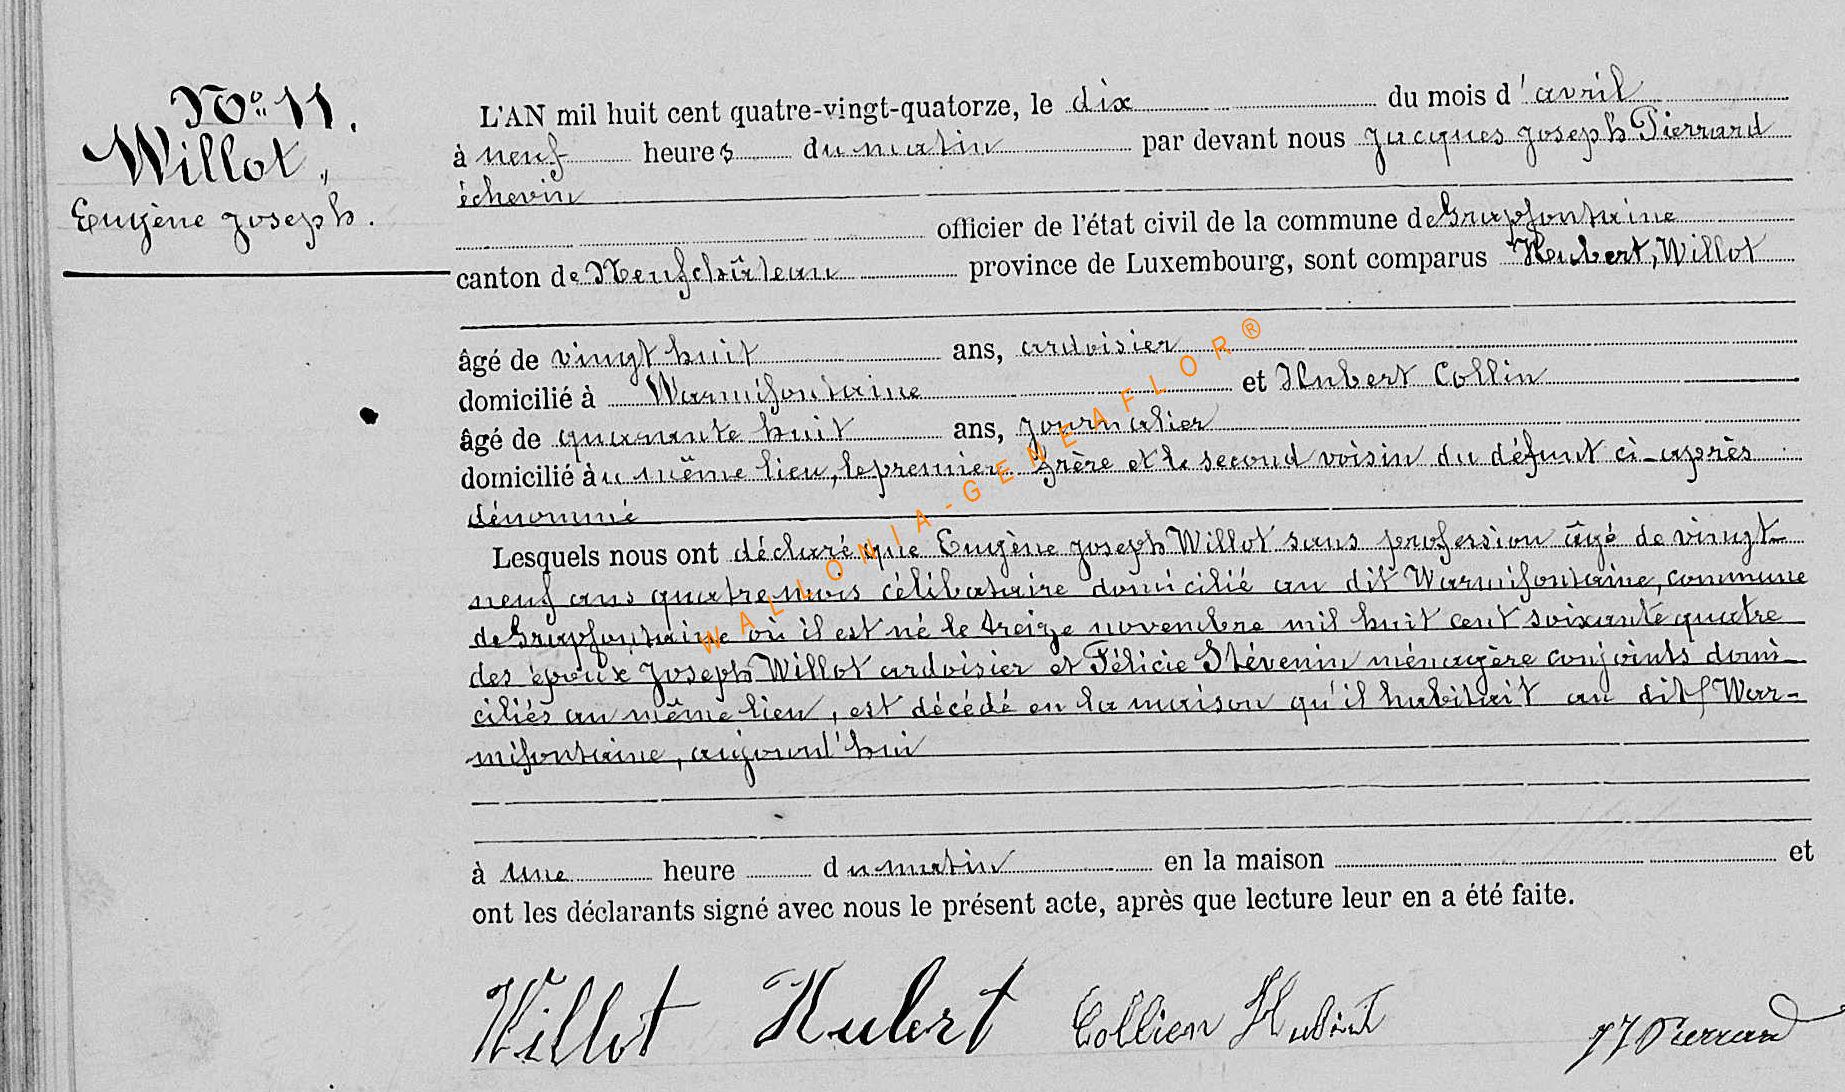 N° 11.
Willot,
Eugène Joseph.
L'AN mil huit cent quatre-vingt-quatorze, le dix du mois d'avril
à neuf heures du matin par devant nous Jacques Joseph Pierrard
échevin
officier de l'état civil de la commune de Grapfontaine
canton de Neufchâteau province de Luxembourg, sont comparus Hubert, Willot
âgé de vingt huit ans, ardoisier
domicilié à Warmifontaine et Hubert Collin
âgé de quarante huit ans, journalier
domicilié au même lieu, le premier frère et le second voisin du défunt ci-après
dénommé
Lesquels nous ont déclaré que Eugène Joseph Willot sans profession âgé de vingt-
neuf ans quatre mois célibataire domicilié au dit Warmifontaine, commune
de Grapfontaine où il est né le treize novembre mil huit cent soixante quatre
des époux Joseph Willot ardoisier et Félicie Stévenin ménagère conjoints domi-
ciliés au même lieu, est décédé en la maison qu'il habitait au dit War-
mifontaine, aujourd'hui
à une heure du matin en la maison et
ont les déclarants signé avec nous le présent acte, après que lecture leur en a été faite.
Willot Hubert Collien Hubert JJ Pierrard
WALLONIA-GENEAFLOR®